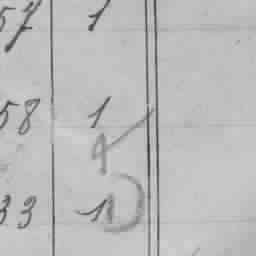 57 1
58 1
4
33 1